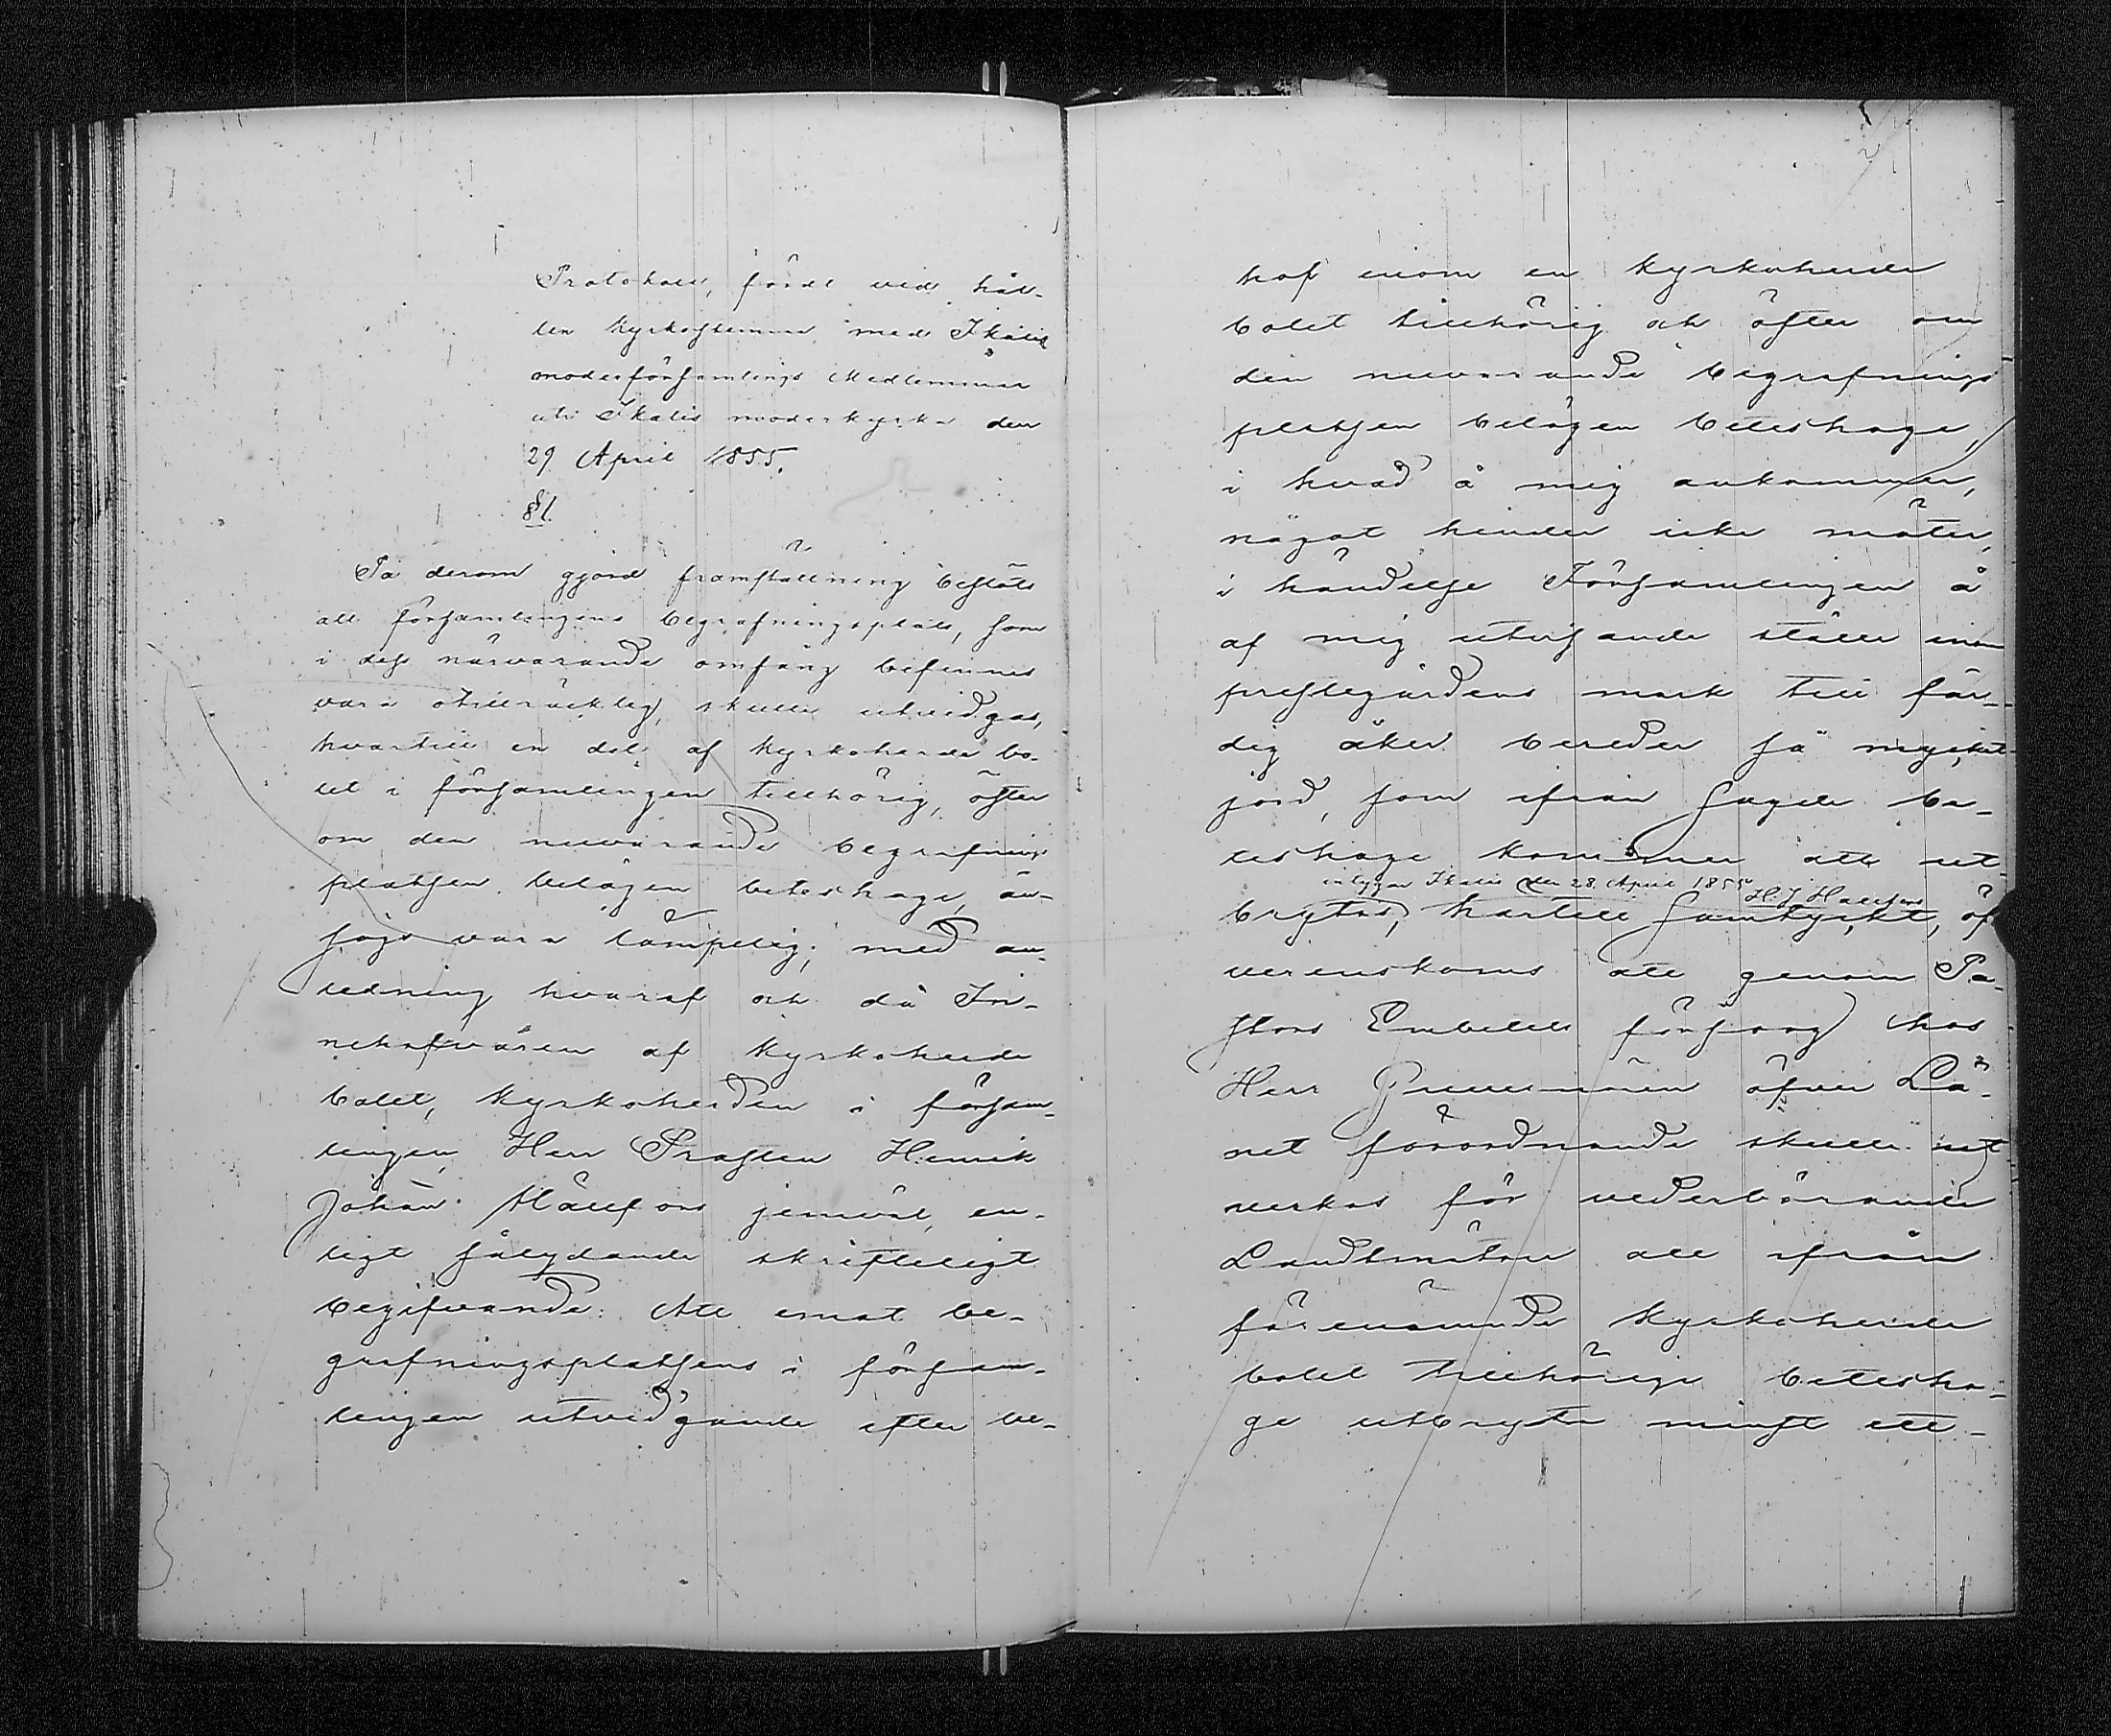 Protokoll, fördt vid hål-
len kyrkostemma med Ikalis
moderförsamlings Medlemmar
uti Ikalis moderkyrka den
29 April 1855.
§1.
På derom gjord framställning beslöts
att församlingens begrafningsplats, som
i dess närvarande omfång befinnes
vara otillräcklig, skulle utvidgas,
hvartill en del af kyrkoherde bo-
let i församlingen tillhörig, öfter
om den nuvarande begrafnings
platsen belägen beteshage, an-
sågs vara lämpelig; med an-
ledning hvaraf och då In-
nehafvaren af kyrkoherde
bolet, kyrkoherden i försam-
lingen Herr Prosten Henrik
Johan Hällfors jemväl, en-
ligt sålydande skrifteligt
begifvande: Att emot be-
grafningsplatsens i försam-
lingen utvidgande efter be-
hof inom en kyrkoherde
bolet tillhörig och öfter om
den nuvarande begrafnings
platsen belägen beteshage,
i hvad å mig ankommer,
något hinder icke möter,
i händelse Församlingen å
af mig utvisande ställe inom
prestegårdens mark till fär-
dig åker bereder så mycket
jord, som ifrån sagde be-
teshage kommer att ut-
intygar Ikalis den 28 April 1855 H.J. Hällfors
brytas, hartill samtyckt, öf
verenskoms att genom Pa-
stors Embetets försorg hos
Herr Guvernören öfver Lä-
net förordnande skulle ut
verkas för vederbörande
Landtmätare att ifrån
förenämnde kyrkoherde
bolet tillhörige betesha-
ge utbryta minst ett